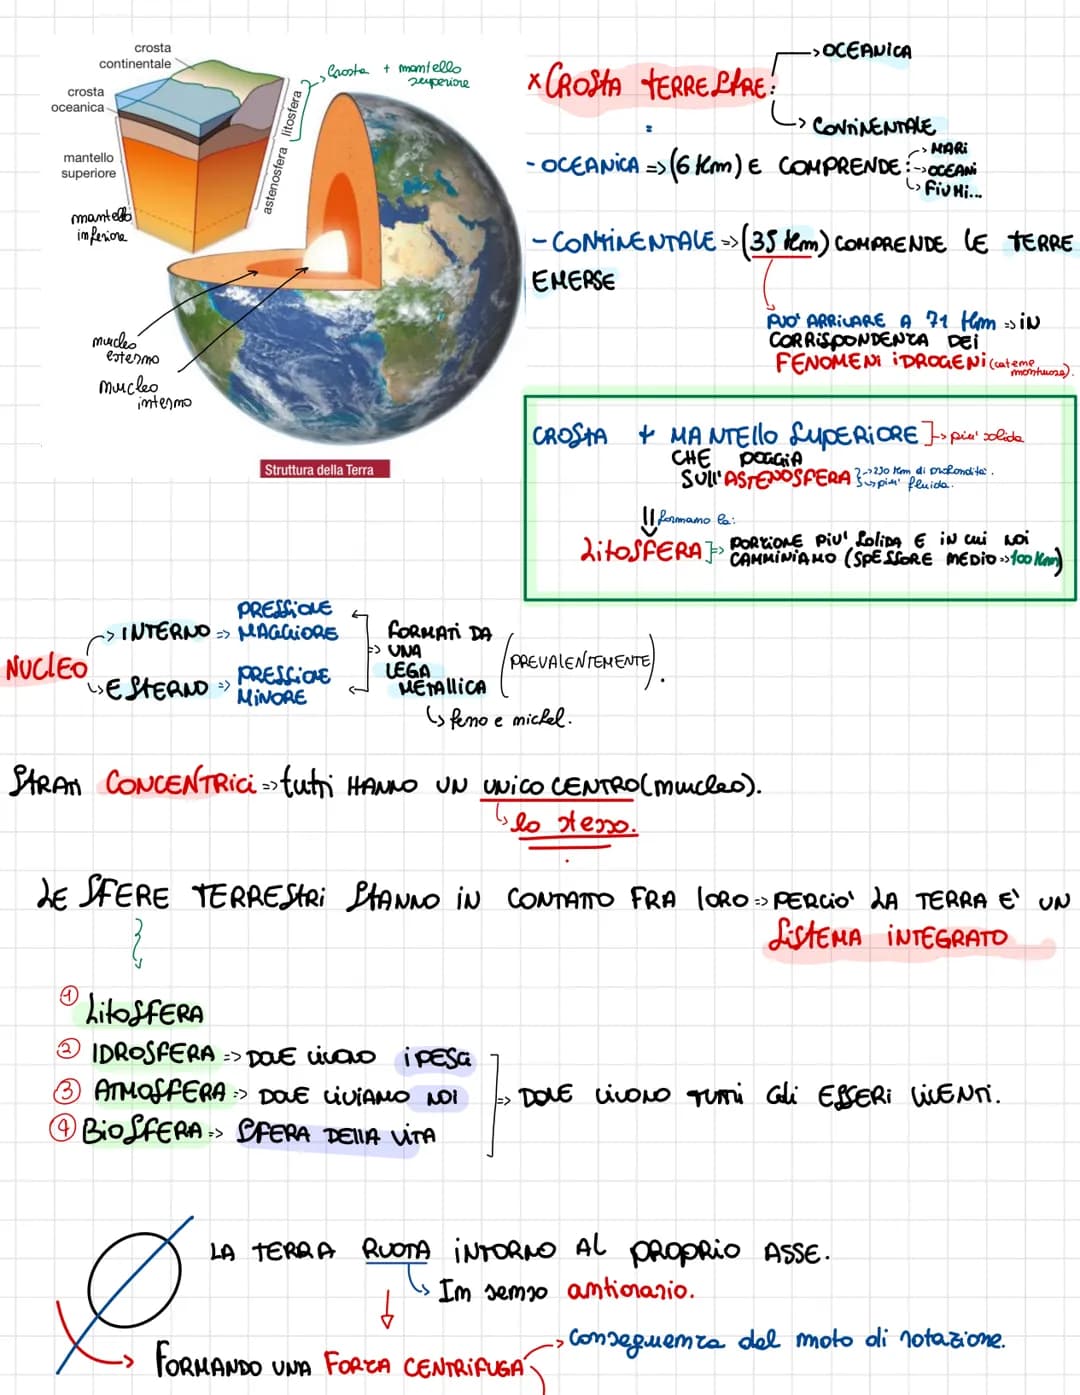 crosta
continentale
crosta
oceanica
mantello
superiore
mantello
inferiore
litosfera
astenosfera
Crosta + mantello
superiore
nucleo
esterno
nucleo
interno
Struttura della Terra
x CROSTA TERRESTRE:
-> OCEANICA
-> CONTINENTALE
- OCEANICA => (6 Km) E COMPRENDE:
-> MARI
-> OCEANI
-> FIUMI...
- CONTINENTALE => (35 Km) COMPRENDE LE TERRE
EMERSE
PUO' ARRIVARE A 71 Km => IN
CORRISPONDENZA DEI
FENOMENI IDROGENI (catene
montuose).
CROSTA + MANTELLO SUPERIORE ]-> piu' solida
CHE POGGIA
SULL'ASTENOSFERA }-> 250 Km di profondita'.
-> piu' fluida.
|| formano la:
LITOSFERA ]=> PORZIONE PIU' SOLIDA E IN CUI NOI
CAMMINIAMO (SPESSORE MEDIO => 100 Km)
NUCLEO
-> INTERNO => PRESSIONE
MAGGIORE
-> ESTERNO => PRESSIONE
MINORE
=> FORMATI DA
UNA
LEGA
METALLICA
(PREVALENTEMENTE).
-> ferro e nichel.
STRATI CONCENTRICI => tutti HANNO UN UNICO CENTRO (nucleo).
-> lo stesso.
LE SFERE TERRESTRI STANNO IN CONTATTO FRA LORO => PERCIO' LA TERRA E' UN
SISTEMA INTEGRATO
① LITOSFERA
② IDROSFERA => DOVE VIVONO I PESCI
③ ATMOSFERA => DOVE VIVIAMO NOI
④ BIOSFERA => SFERA DELLA VITA
=> DOVE VIVONO TUTTI GLI ESSERI VIVENTI.
LA TERRA RUOTA INTORNO AL PROPRIO ASSE.
-> In senso antiorario.
-> FORMANDO UNA FORZA CENTRIFUGA
-> Conseguenza del moto di rotazione.